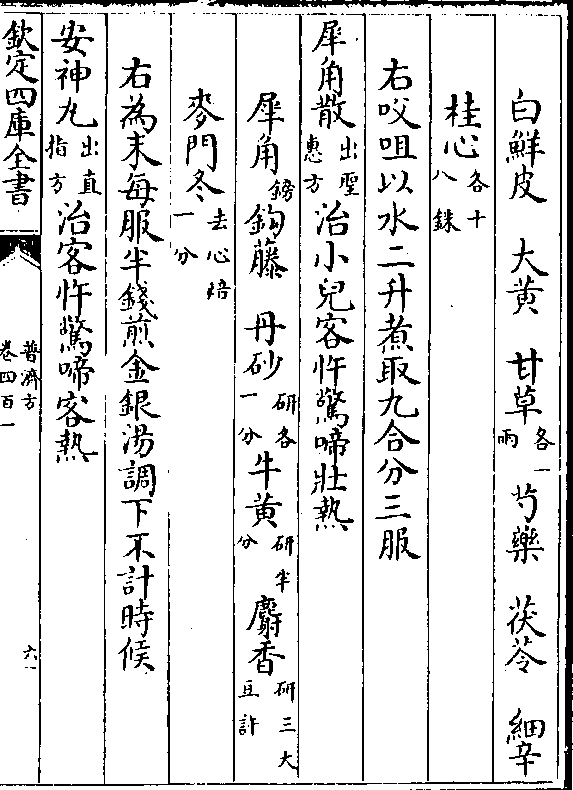 白鮮皮 大黃 甘草各一兩 芍藥 茯苓 細辛
桂心各十八銖
右咬咀以水二升煮取九合分三服
犀角散出聖惠方治小兒客忤驚啼壯熱
犀角鎊 鈎藤 丹砂研各一分 牛黃研半分 麝香研三大豆許
麥門冬去心焙一分
右為末每服半錢煎金銀湯調下不計時候
安神丸出直指方治客忤驚啼客熱
欽定四庫全書 普濟方卷四百一 六